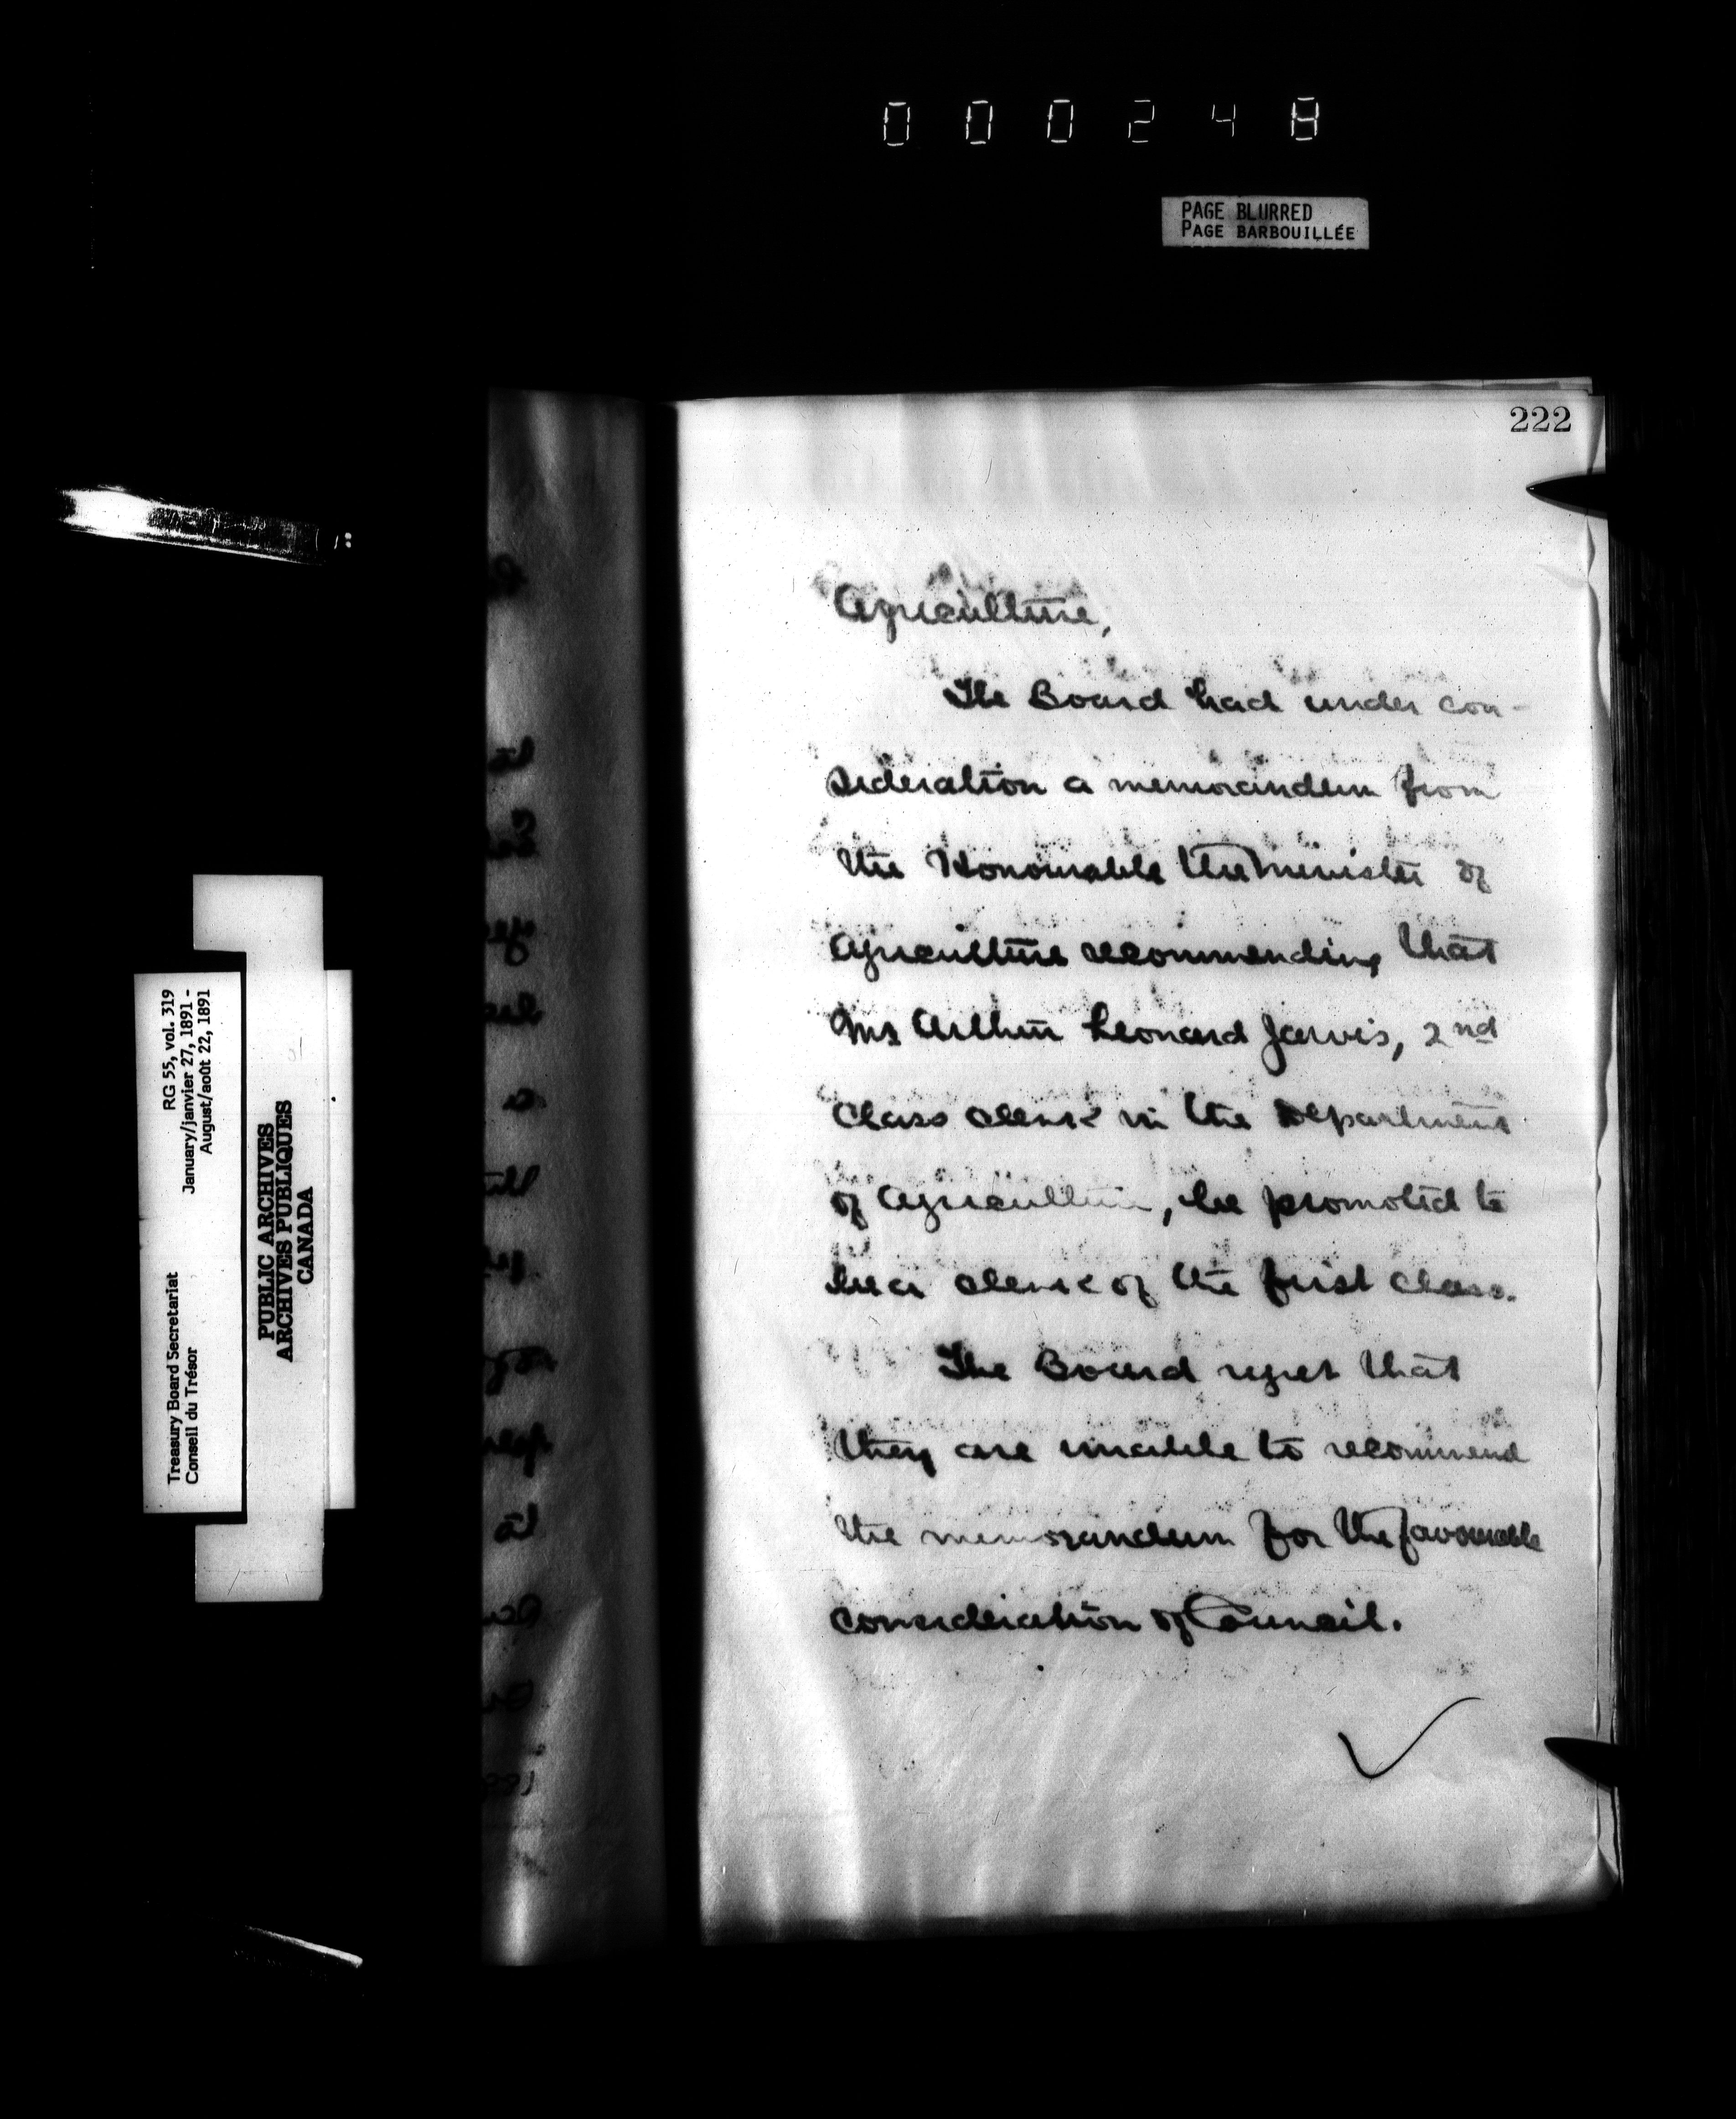 000248
PAGE BLURRED
PAGE BARBOUILLÉE
222
Agriculture,
The Board had under con-
sideration a memorandum from
the Honourable the Minister of
Agriculture recommending that
Mr Arthur Leonard Jarvis, 2nd
Class clerk in the Department
of Agriculture, be promoted to
be a clerk of the first class.
The Board regret that
they are unable to recommend
the memorandum for the favourable
consideration of Council.
Treasury Board Secretariat
Conseil du Trésor
RG 55, vol. 319
January/janvier 27, 1891 -
August/août 22, 1891
PUBLIC ARCHIVES
ARCHIVES PUBLIQUES
CANADA